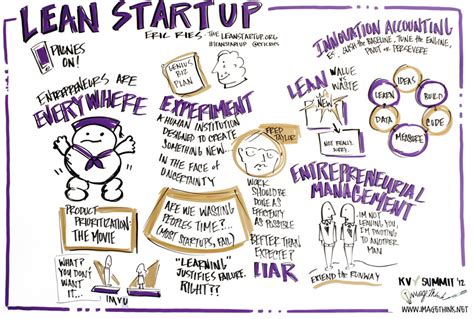 LEAN STARTUP
ERIC RIES - THE LEANSTARTUP.ORG
#LEANSTARTUP @ERICRIES
PHONES
ON!
ENTREPRENEURS ARE
EVERYWHERE
GENIUS
BIZ
PLAN
EXPERIMENT
A HUMAN INSTITUTION
DESIGNED TO CREATE
SOMETHING NEW...
IN THE FACE OF
UNCERTAINTY
FRED
TAYLOR
PRODUCT
PRIORITIZATION:
THE MOVIE
WHAT?
YOU DON'T
WANT
IT...
IMVU
ARE WE WASTING
PEOPLES TIME?...
(MOST STARTUPS, FAIL)
"LEARNING"
JUSTIFIES FAILURE.
RIGHT??
WORK
SHOULD BE
DONE AS
EFFICIENTLY
AS POSSIBLE
BETTER THAN
EXPECTED?
LIAR
LEAN
VALUE
VS
WASTE
NEW
NOT REALLY,
SORRY.
INNOVATION ACCOUNTING
THE BASELINE, TUNE THE ENGINE,
PIVOT OR PERSEVERE
IDEAS
BUILD
CODE
MEASURE
DATA
LEARN
ENTREPRENEURIAL
MANAGEMENT
I'M NOT
LEAVING YOU,
I'M PIVOTING
TO ANOTHER
MAN
EXTEND THE RUNWAY
KV SUMMIT '12
ImageThink
WWW.IMAGETHINK.NET